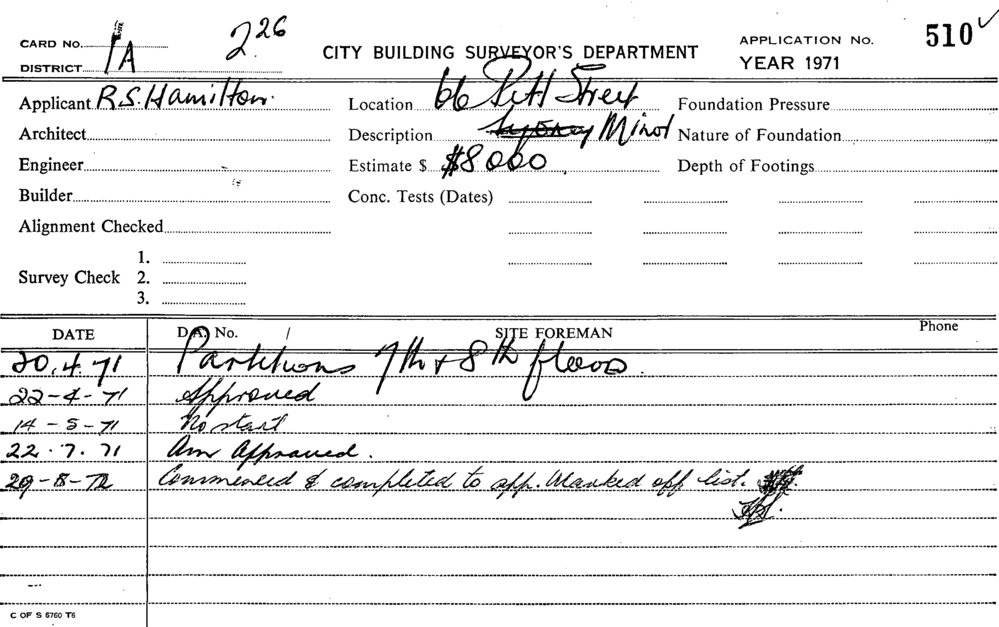 CARD No. 1A 2.26 CITY BUILDING SURVEYOR'S DEPARTMENT APPLICATION No. 510
DISTRICT YEAR 1971
Applicant R.S. Hamilton. Location 66 Pitt Street Foundation Pressure
Architect Description Sydney Minor Nature of Foundation
Engineer Estimate $ $8000 Depth of Footings
Builder Conc. Tests (Dates)
Alignment Checked
1.
Survey Check 2.
3.
DATE D.A. No. / SITE FOREMAN Phone
20.4.71 Partitions 7th + 8th floors.
22-4-71 Approved
14-5-71 No start
22.7.71 Am Approved.
29-8-72 Commenced & completed to app. Marked off list.
C OF S 5760 T6